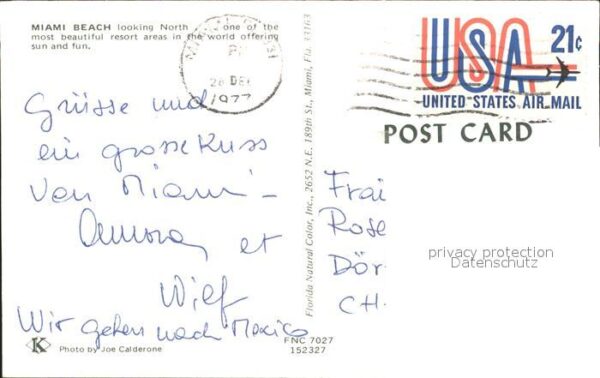 MIAMI BEACH looking North one of the
most beautiful resort areas in the world offering
sun and fun.
28 DE
1977
USA 21¢
UNITED STATES AIR MAIL
POST CARD
Grüsse und
ein grosse Kuss
von Miami -
et
Wir gehen nach Mexico
Florida Natural Color, Inc., 2652 N.E. 189th St., Miami, Fla. 33163
Frai
Rose
Dör
CH.
privacy protection
Datenschutz
K
Photo by Joe Calderone
FNC 7027
152327